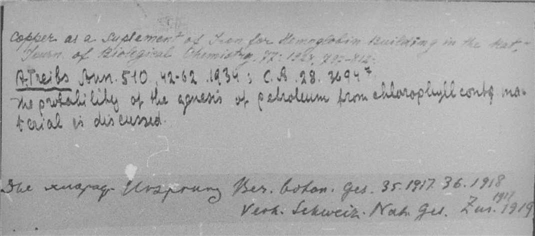 Copper as a Suplement of Iron for Hemoglobin Building in the Rat,
Journ. of Biological Chemistry. 77: 1928, 
A. Treibs Ann. 510. 42-62. 1934; C. A. 28. 3694⁷
The probability of the genesis of petroleum from chlorophyll contg ma-
terial is discussed.
Ursprung Ber. botan. Ges. 35. 1917. 36. 1918
Verh. Schweiz. Nat. Ges. 1917 1919